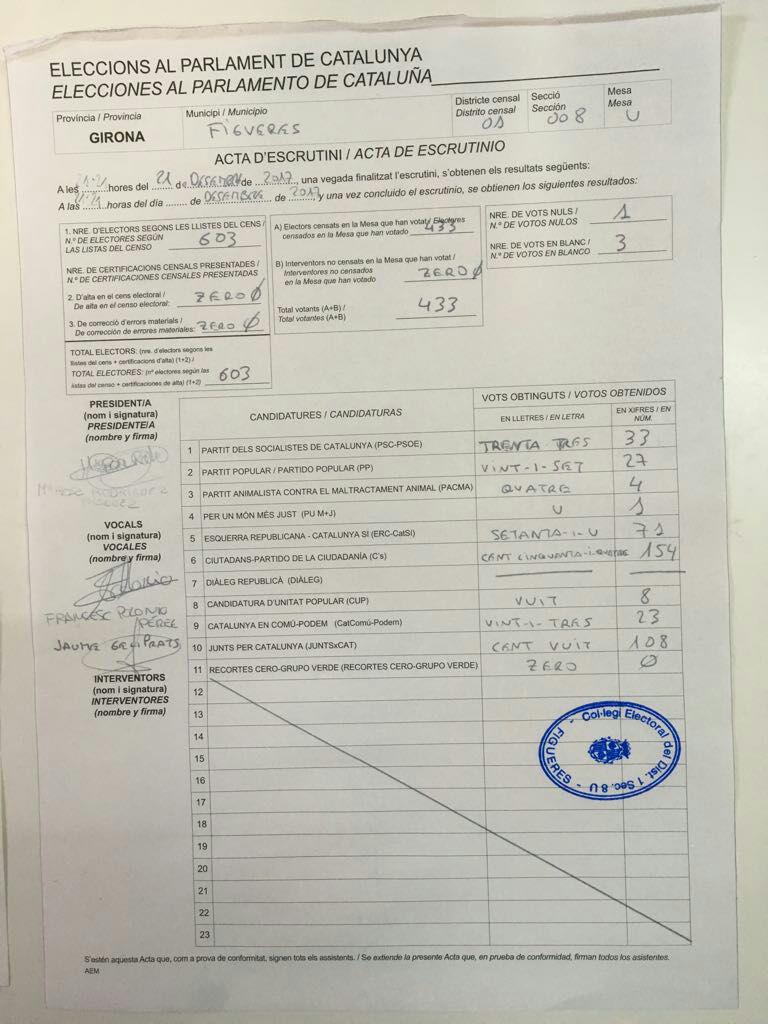 ELECCIONS AL PARLAMENT DE CATALUNYA
ELECCIONES AL PARLAMENTO DE CATALUÑA
Província / Provincia
GIRONA
Municipi / Municipio
FIGUERES
Districte censal
Distrito censal
01
Secció
Sección
008
Mesa
Mesa
U
ACTA D'ESCRUTINI / ACTA DE ESCRUTINIO
A les 21:21 hores del 21 de DESEMBRE de 2017, una vegada finalitzat l'escrutini, s'obtenen els resultats següents:
A las 21:21 horas del día ........ de DESEMBRE de 2017, y una vez concluido el escrutinio, se obtienen los siguientes resultados:
1. NRE. D'ELECTORS SEGONS LES LLISTES DEL CENS /
N.º DE ELECTORES SEGÚN
LAS LISTAS DEL CENSO
603
NRE. DE CERTIFICACIONS CENSALS PRESENTADES /
N.º DE CERTIFICACIONES CENSALES PRESENTADAS
2. D'alta en el cens electoral /
De alta en el censo electoral:
ZERO 0
3. De correcció d'errors materials /
De corrección de errores materiales:
ZERO 0
TOTAL ELECTORS: (nre. d'electors segons les
llistes del cens + certificacions d'alta) (1+2) /
TOTAL ELECTORES: (nº electores según las
listas del censo + certificaciones de alta) (1+2)
603
A) Electors censats en la Mesa que han votat / Electores
censados en la Mesa que han votado
433
B) Interventors no censats en la Mesa que han votat /
Interventores no censados
en la Mesa que han votado
ZERO 0
Total votants (A+B) /
Total votantes (A+B)
433
NRE. DE VOTS NULS /
N.º DE VOTOS NULOS
1
NRE. DE VOTS EN BLANC /
N.º DE VOTOS EN BLANCO
3
PRESIDENT/A
(nom i signatura)
PRESIDENTE/A
(nombre y firma)
VOCALS
(nom i signatura)
VOCALES
(nombre y firma)
FRANCESC POLONIO
PÉREZ
JAUME GELI PRATS
INTERVENTORS
(nom i signatura)
INTERVENTORES
(nombre y firma)
CANDIDATURES / CANDIDATURAS
VOTS OBTINGUTS / VOTOS OBTENIDOS
EN LLETRES / EN LETRA
EN XIFRES / EN NÚM.
1 PARTIT DELS SOCIALISTES DE CATALUNYA (PSC-PSOE) TRENTA TRES 33
2 PARTIT POPULAR / PARTIDO POPULAR (PP) VINT-I-SET 27
3 PARTIT ANIMALISTA CONTRA EL MALTRACTAMENT ANIMAL (PACMA) QUATRE 4
4 PER UN MÓN MÉS JUST (PU M+J) U 1
5 ESQUERRA REPUBLICANA - CATALUNYA SI (ERC-CatSI) SETANTA-I-U 71
6 CIUTADANS-PARTIDO DE LA CIUDADANÍA (C's) CENT CINQUANTA-I-QUATRE 154
7 DIÀLEG REPUBLICÀ (DIÀLEG)
8 CANDIDATURA D'UNITAT POPULAR (CUP) VUIT 8
9 CATALUNYA EN COMÚ-PODEM (CatComú-Podem) VINT-I-TRES 23
10 JUNTS PER CATALUNYA (JUNTSxCAT) CENT VUIT 108
11 RECORTES CERO-GRUPO VERDE (RECORTES CERO-GRUPO VERDE) ZERO 0
12
13
14
15
16
17
18
19
20
21
22
23
Col·legi Electoral del Dist. 1 Sec. 8 U - FIGUERES -
S'estén aquesta Acta que, com a prova de conformitat, signen tots els assistents. / Se extiende la presente Acta que, en prueba de conformidad, firman todos los asistentes.
AEM